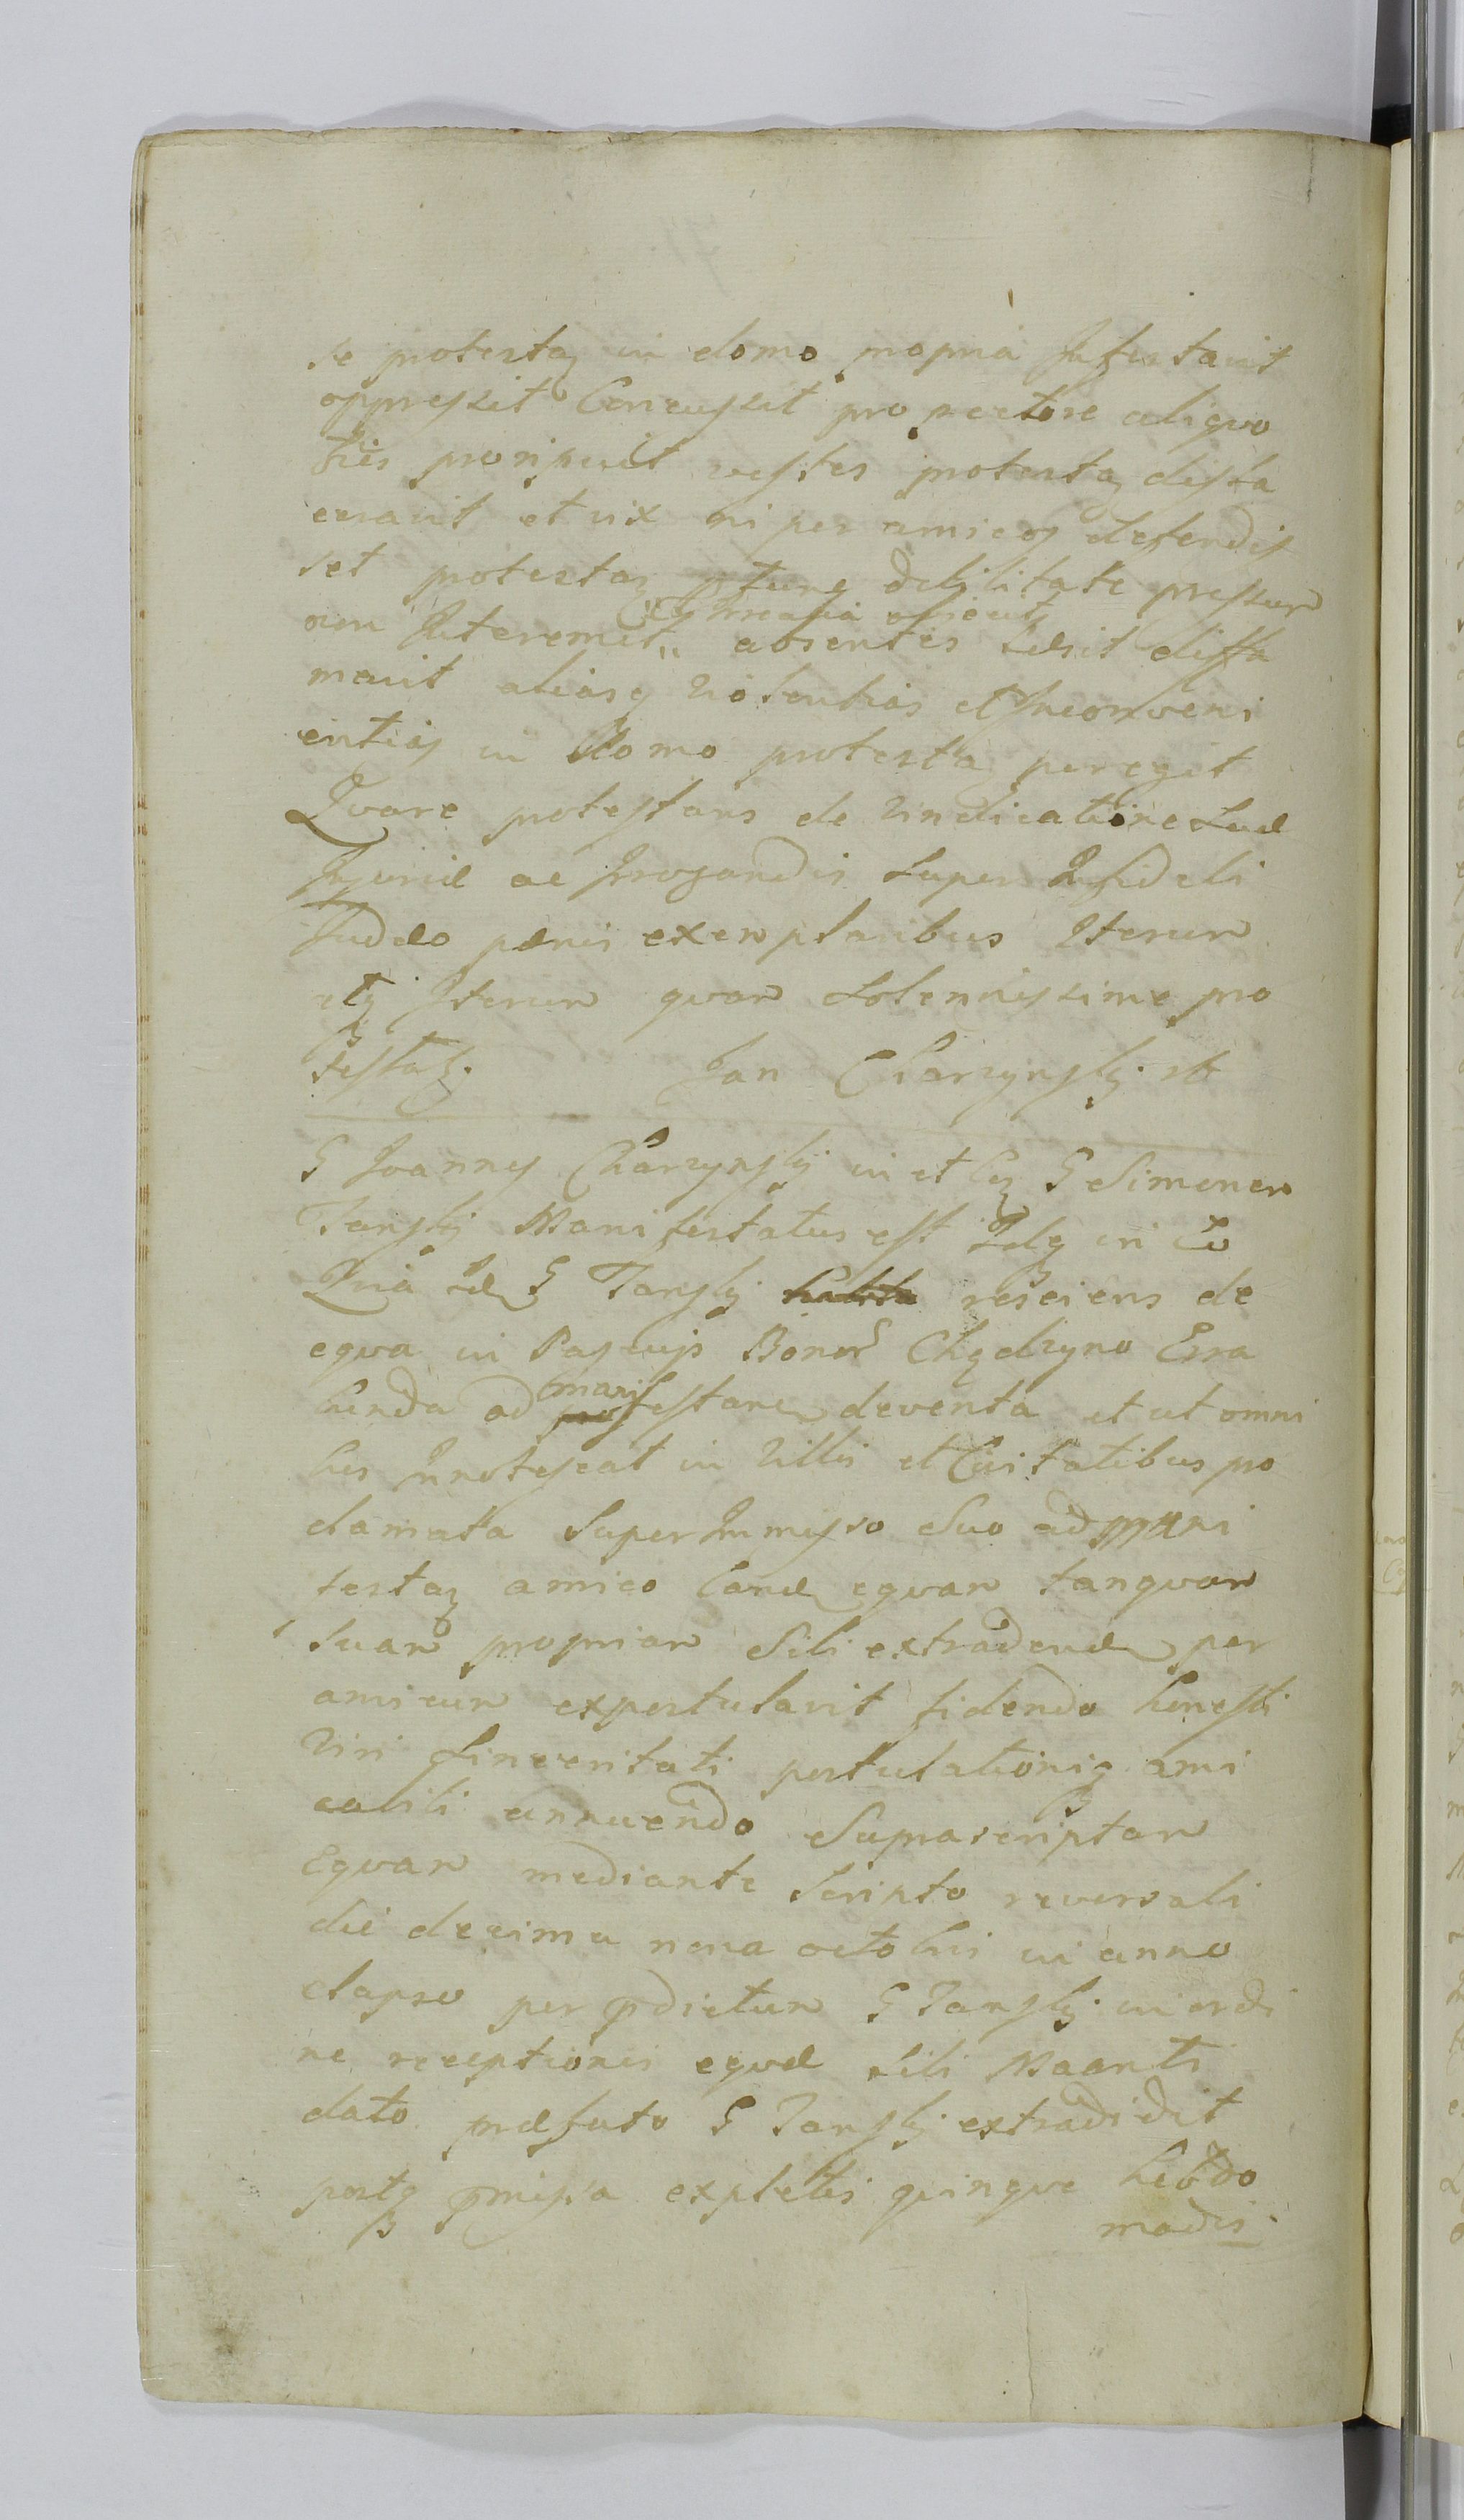 se protestaz in domo propria Infestavit
oppressit Concussit pro pectore aliquo
ties proripuit vestes protestaz disla
ceravit et vix ni per amicos defendis
set protestaz tunc debilitate pressum
non Interemit absentes laesit diffa
mavit aliasq violentias et Inconveni
entias in domo protestaz peregit
Qvare protestans de vindicatione suae
Injuriae ac Irrogandis super Infideli
Judaeo paenis exemplaribus Iterum
atq Iterum qvam solennissime pro
testatz. Jan Charzynsky. m
G Joannes Charzynskij in et Cq G Simonem
Jansky Manifestatus est Idq in Eo
Quia idem G Jansky resciens de
eqva in Pascuis Bonor Chądzyno Erra
bunda ad manifestantem deventa et ut omni
bus Innotescat in villis et Civitatibus pro
clamata super Immisso suo ad mani
festaz amico eand eqvam tanqvam
suam propriam sibi extradend per
amicum expostulavit fidendo honesti
viri sinceritati postulationiq ami
cabili annuendo suprascriptam
Eqvam mediante scripto reversali
die decima nona octobris in anno
elapso per pdictum G Jansky in ordi
ne receptionis eqvae sibi Maanti
dato praefato G Jansky extradidit
postq pmissa expletis quinque hebdo
madis